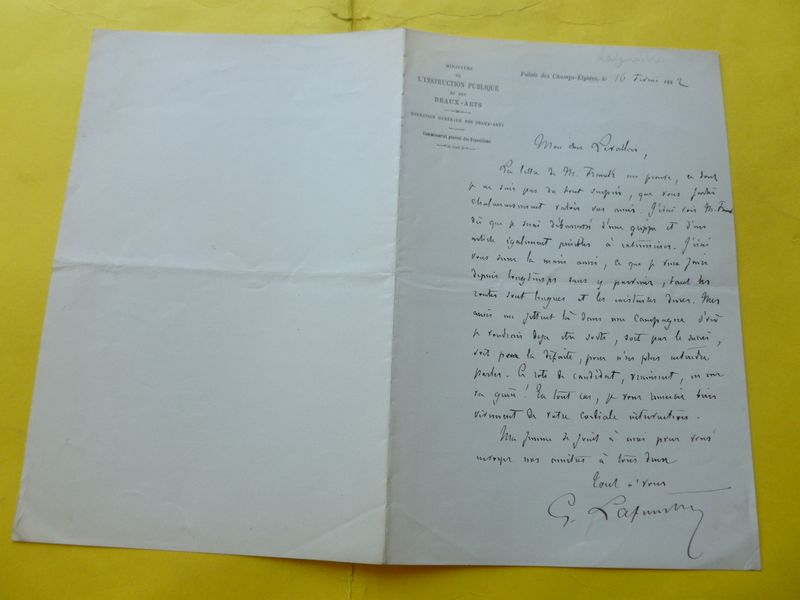 Lafenestre
MINISTÈRE
DE
L'INSTRUCTION PUBLIQUE
ET DES
BEAUX-ARTS
DIRECTION GÉNÉRALE DES BEAUX-ARTS
Commissariat général des Expositions
Palais des Champs-Élysées, le 16 février 1882
Mon cher Levallois,
La lettre de M. me prouve, ce dont
je ne suis pas du tout surpris, que vous
chaleureusement valoir vos amis. J'irai voir M.
dès que je serai débarrassé d'une grippe et d'un
article également pénibles à . J'irai
vous serrer la main aussi, ce que je veux faire
depuis longtemps sans y parvenir, tant les
routes sont longues et les . Mes
amis me jettent là dans une campagne d'où
je voudrais déjà être sorti, soit par le succès,
soit par la défaite, pour n'en plus entendre
parler. Ce rôle de candidat, vraiment, ne me
va guère! En tout cas, je vous remercie bien
vivement de votre cordiale intervention.
Ma femme se joint à moi pour vous
envoyer nos amitiés à tous deux
Tout à vous
G. Lafenestre